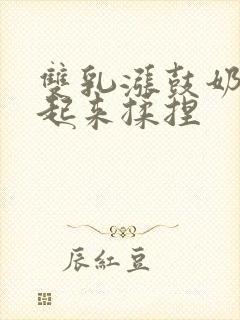 雙乳漲鼓奶
起来揉捏
辰紅豆